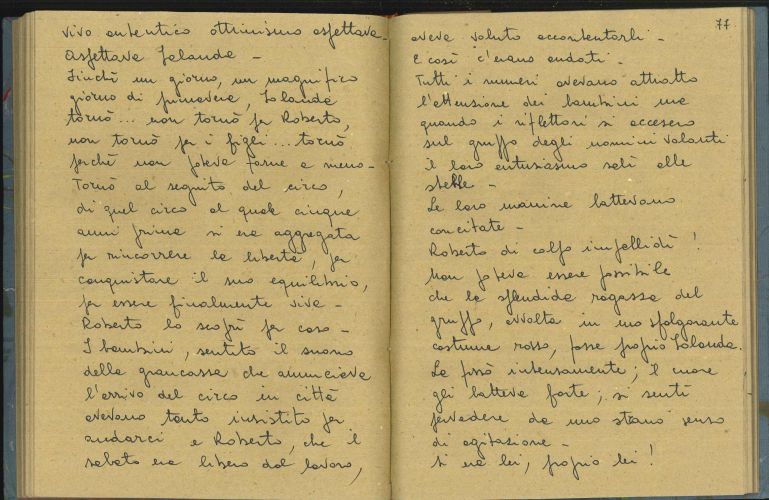 vivo autentico ottimismo aspettava
aspettava Jolanda -
Finchè un giorno, un magnifico
giorno di primavera, Jolanda
tornò... non tornò per Roberto,
non tornò per i figli... tornò
perchè non poteva farne a meno -
Tornò al seguito del circo,
di quel circo al quale cinque
anni prima si era aggregata
per rincorrere la libertà, per
conquistare il suo equilibrio,
per essere finalmente viva -
Roberto lo scoprì per caso -
I bambini, sentito il suono
della grancassa che annunciava
l'arrivo del circo in città
avevano tanto insistito per
andarci e Roberto, che il
sabato era libero dal lavoro,
77
aveva voluto accontentarli -
E così c'erano andati -
Tutti i numeri avevano attratto
l'attenzione dei bambini ma
quando i riflettori si accesero
sul gruppo degli uomini volanti
il loro entusiasmo salì alle
stelle -
Le loro manine battevano
concitate -
Roberto di colpo impallidì!
Non poteva essere possibile
che la splendida ragazza del
gruppo, avvolta in uno sfolgorante
costume rosso, fosse proprio Jolanda.
La fissò intensamente; il cuore
gli batteva forte; si sentì
pervadere da uno strano senso
di agitazione -
Si era lei, proprio lei!